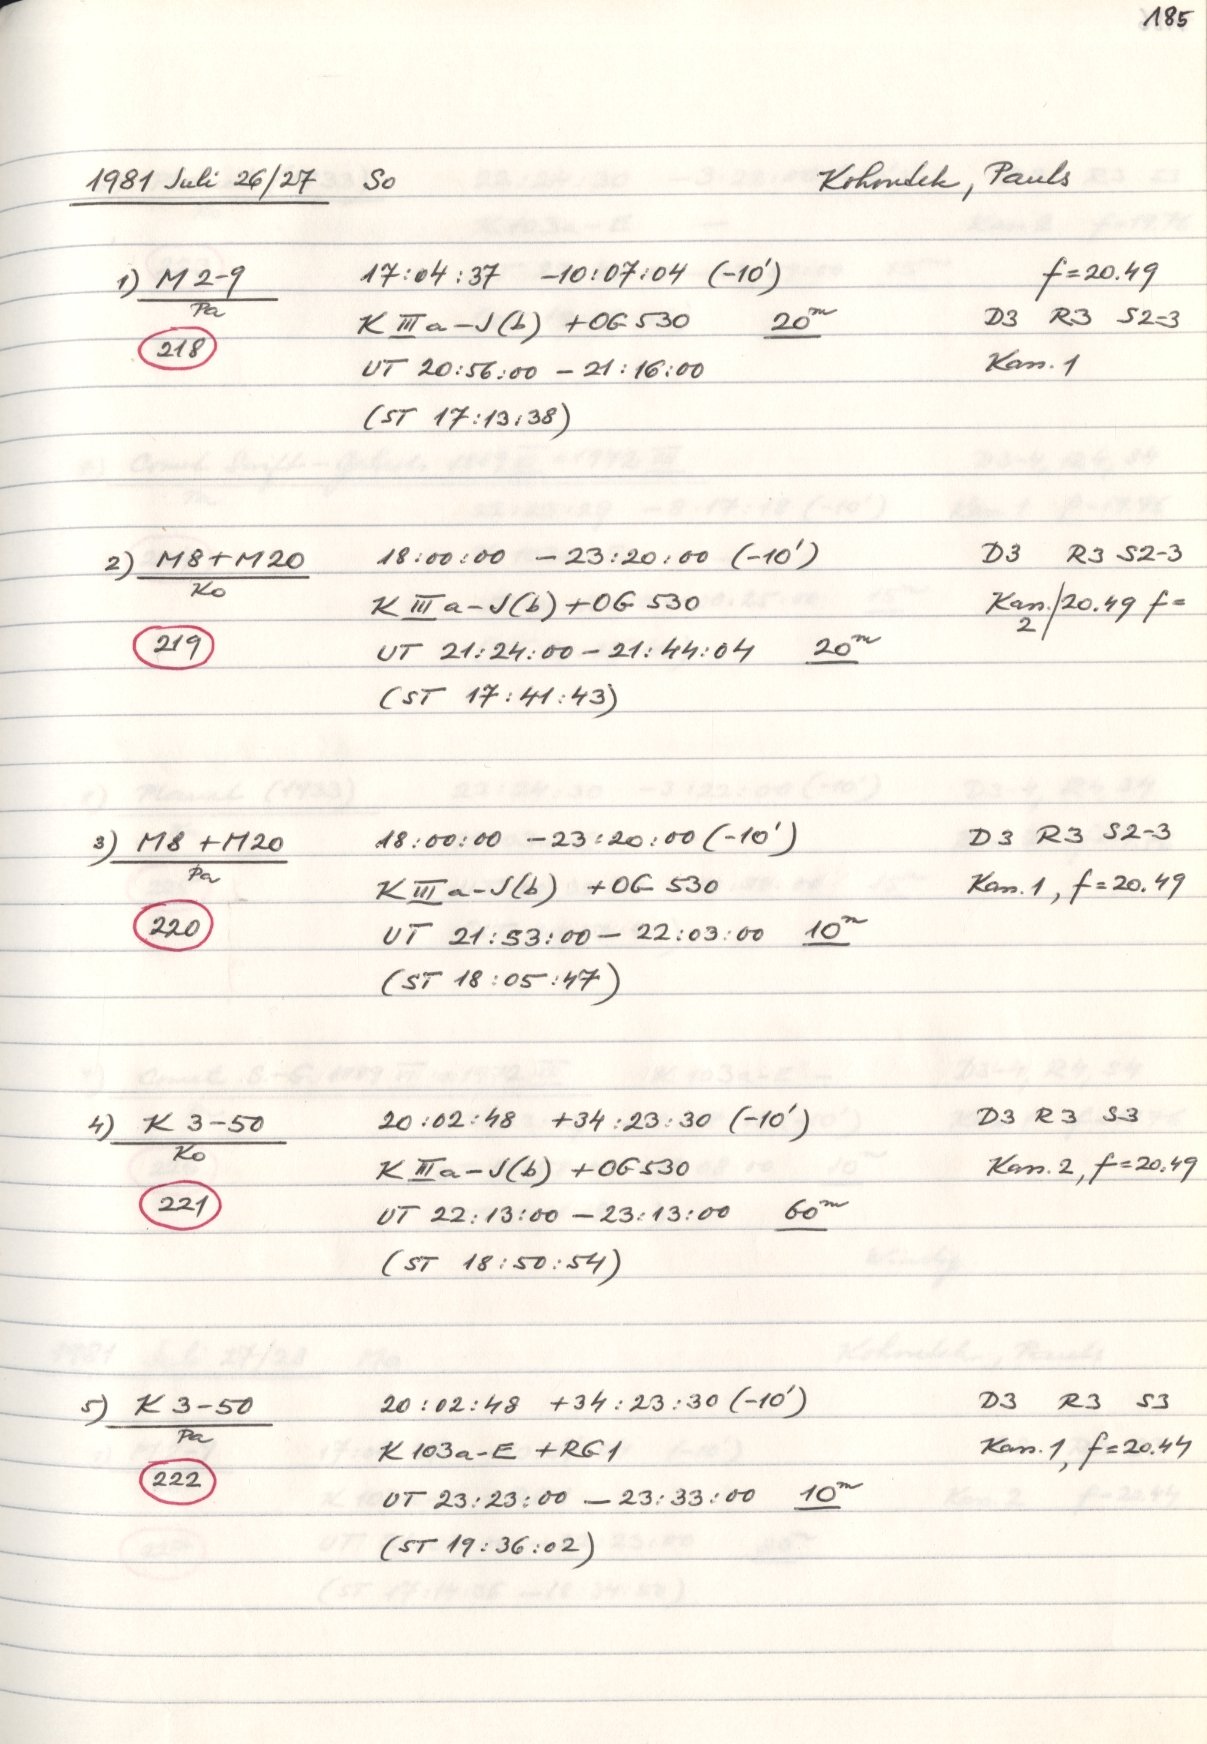 185
1981 Juli 26/27 So Kohoutek, Pauls
1) M 2-9 17:04:37 -10:07:04 (-10') f=20.49
Pa K IIIa-J(b) +OG 530 20m D3 R3 S2-3
218 UT 20:56:00 - 21:16:00 Kas. 1
(ST 17:13:38)
2) M8+M20 18:00:00 -23:20:00 (-10') D3 R3 S2-3
Ko K IIIa-J(b)+OG 530 Kas. 2/20.49 f=
219 UT 21:24:00-21:44:04 20m
(ST 17:41:43)
3) M8 +M20 18:00:00 -23:20:00 (-10') D3 R3 S2-3
Pa K IIIa-J(b) +OG 530 Kas. 1, f=20.49
220 UT 21:53:00 - 22:03:00 10m
(ST 18:05:47)
4) K 3-50 20:02:48 +34:23:30 (-10') D3 R3 S3
Ko K IIIa-J(b) +OG530 Kas. 2, f=20.49
221 UT 22:13:00 - 23:13:00 60m
(ST 18:50:54)
5) K 3-50 20:02:48 +34:23:30 (-10') D3 R3 S3
Pa K 103a-E +RG1 Kas. 1, f=20.44
222 UT 23:23:00 - 23:33:00 10m
(ST 19:36:02)